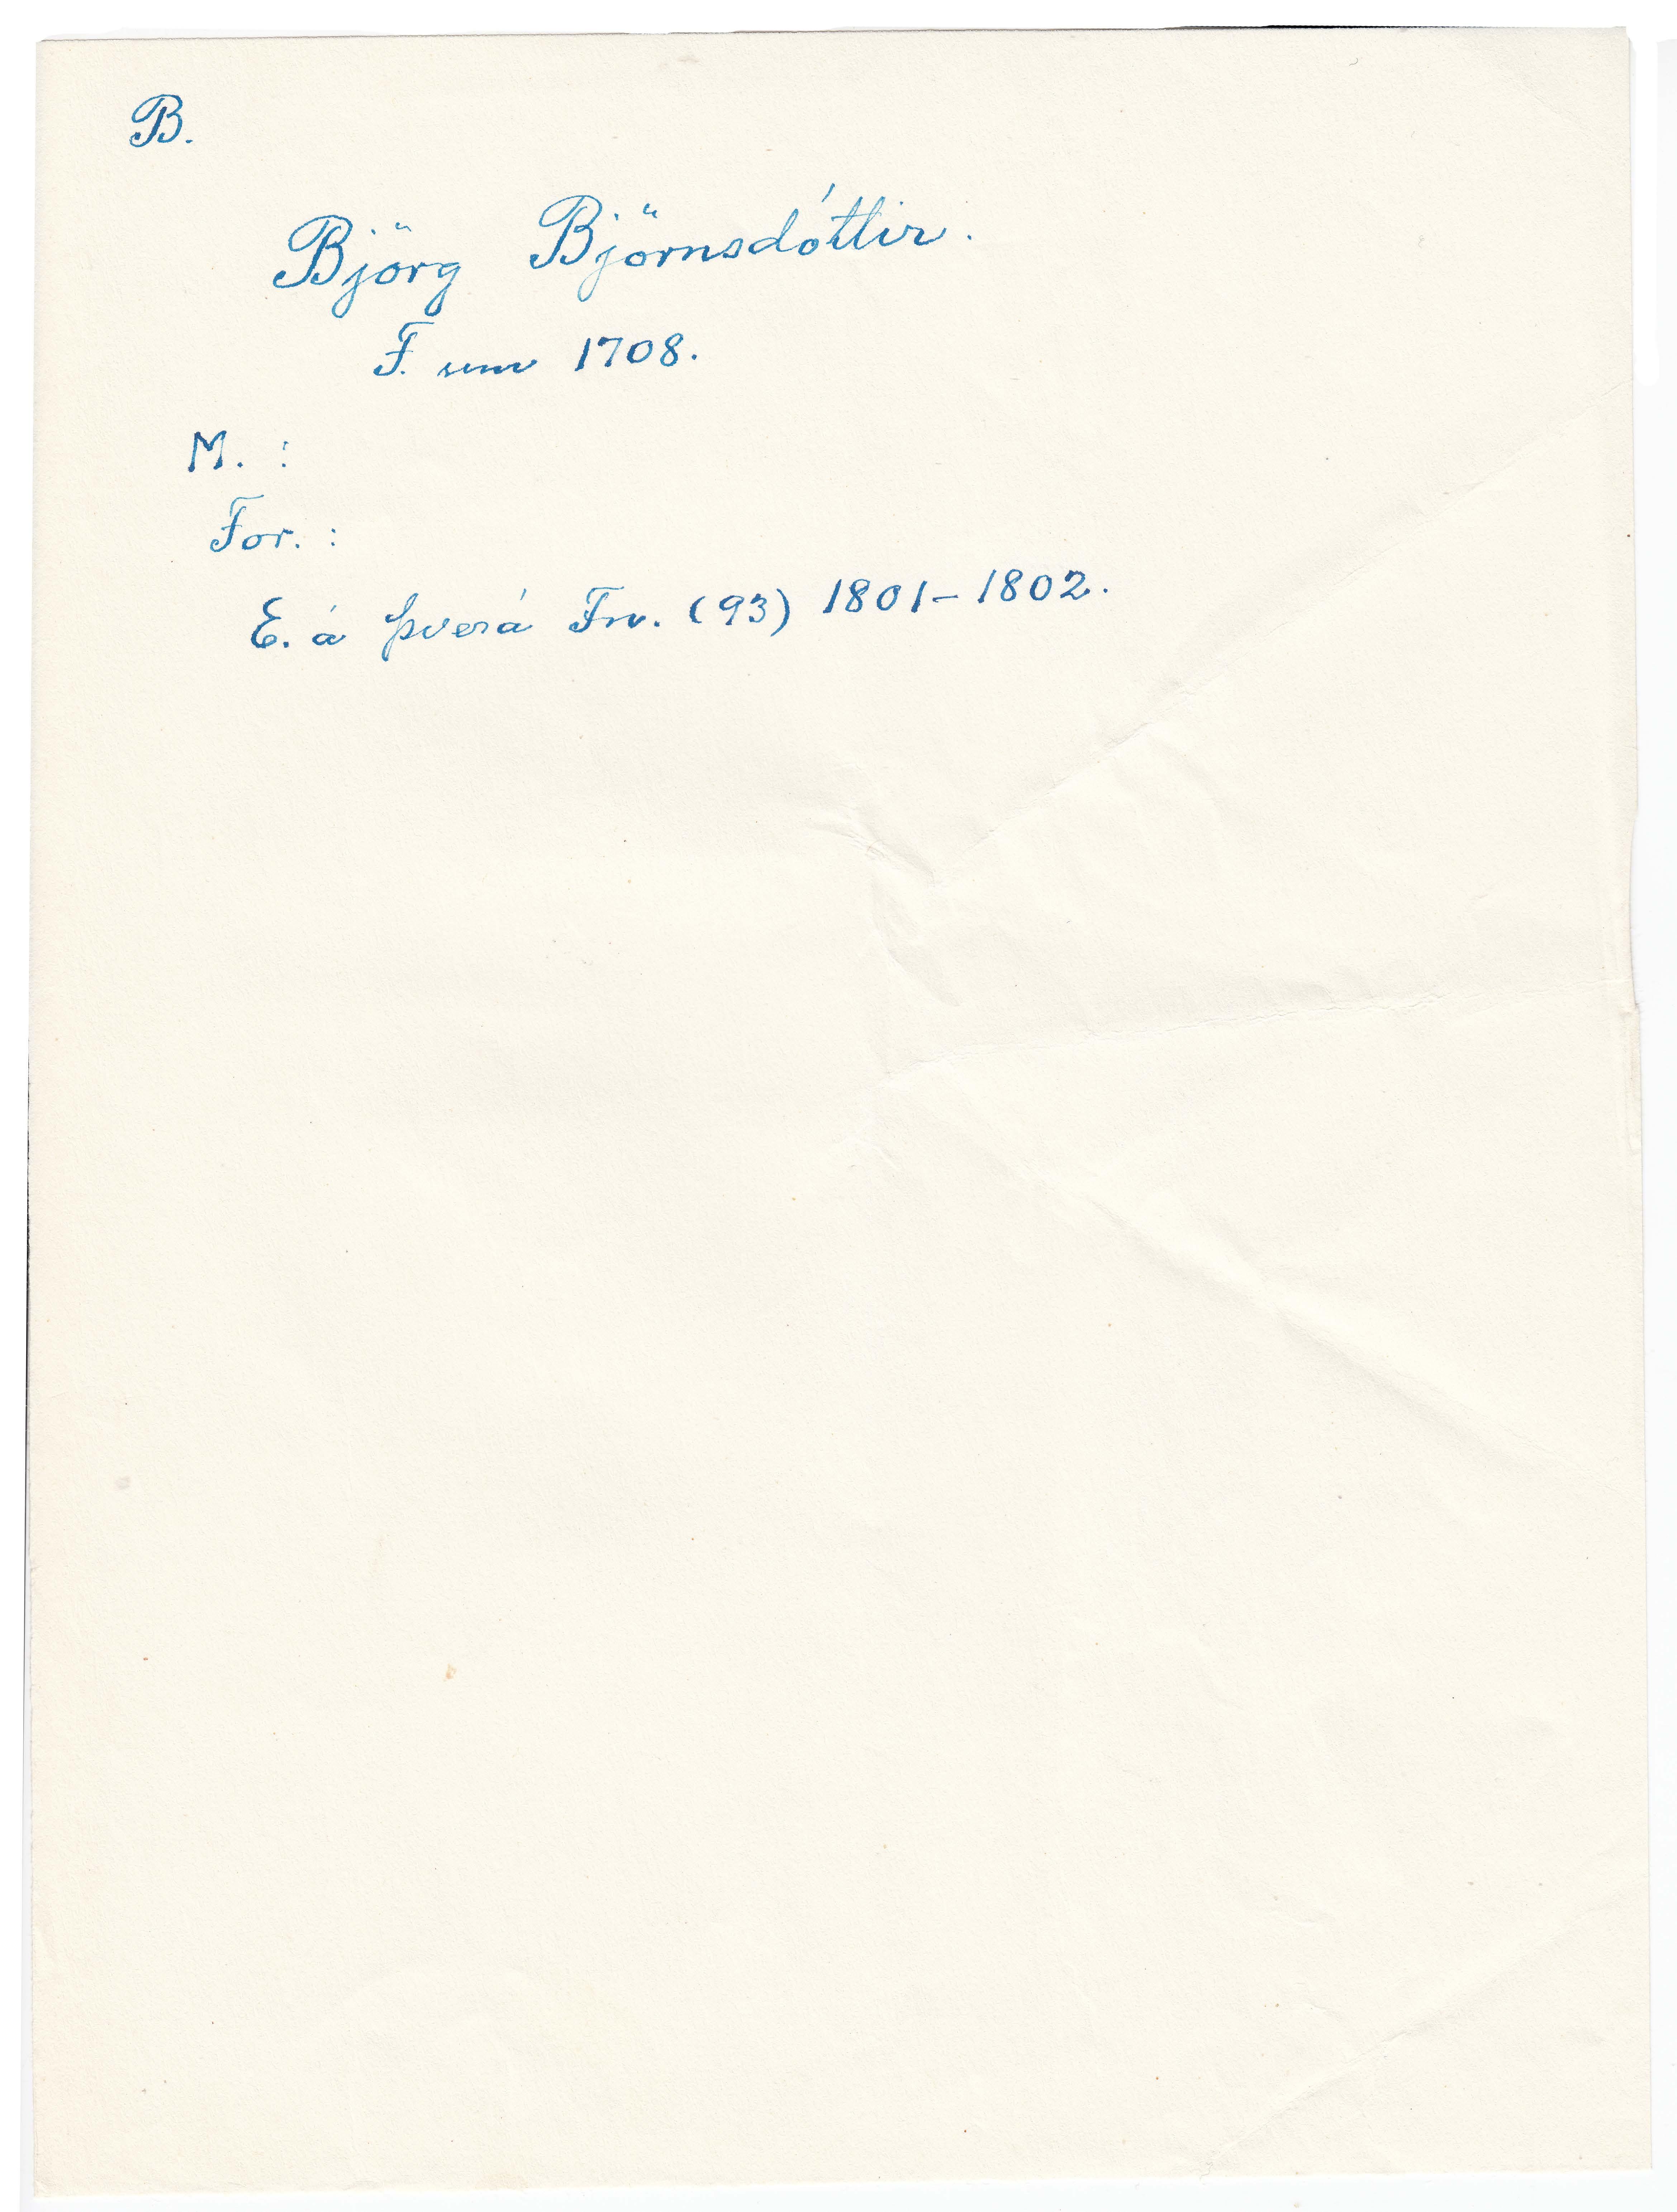 B.
Björg Björnsdóttir.
F. um 1708.
M. :
For. :
E. á Þverá Fnv. (93) 1801-1802.